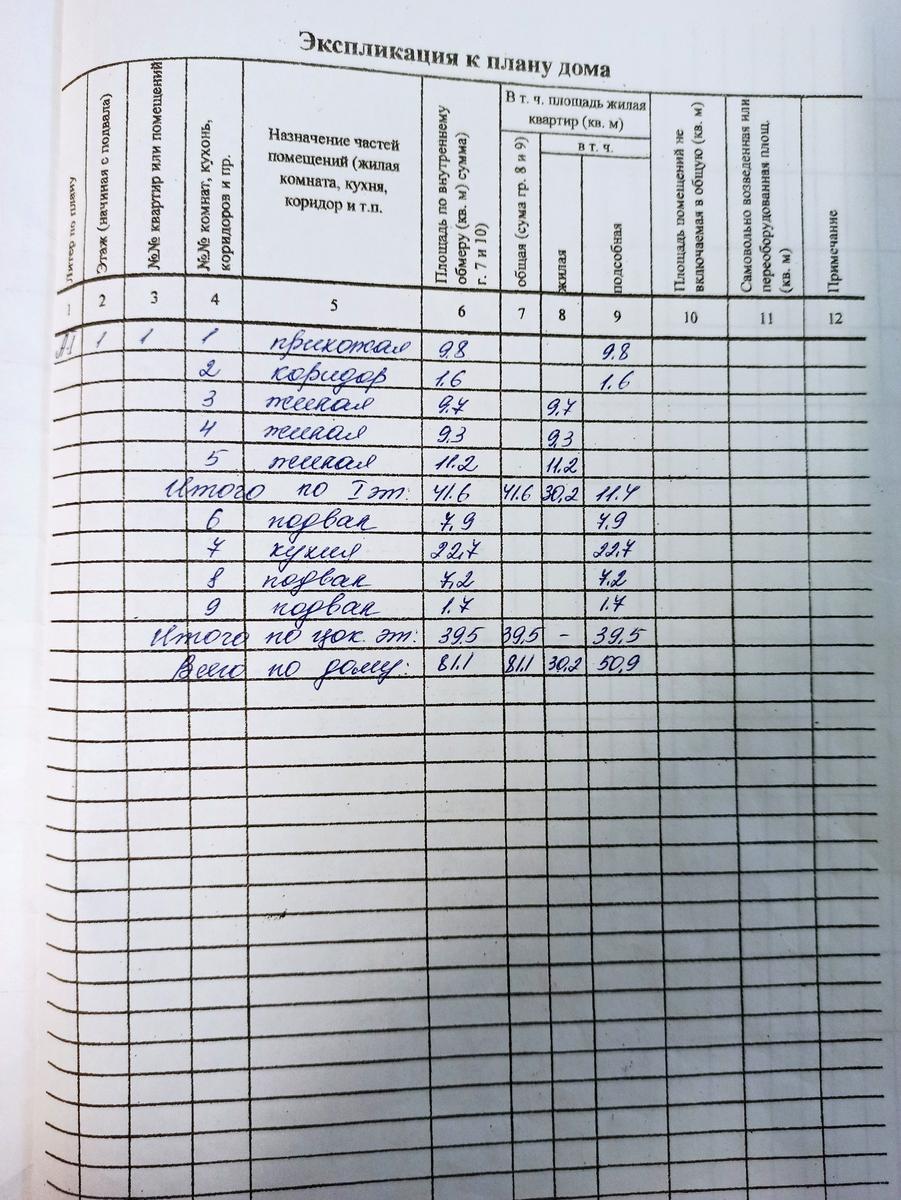 Экспликация к плану дома
Литер по плану
Этаж (начиная с подвала)
№№ квартир или помещений
№№ комнат, кухонь,
коридоров и пр.
Назначение частей
помещений (жилая
комната, кухня,
коридор и т.п.
Площадь по внутреннему
обмеру (кв. м) сумма)
г. 7 и 10)
В т. ч. площадь жилая
квартир (кв. м)
общая (сума гр. 8 и 9)
в т. ч.
жилая
подсобная
Площадь помещений не
включаемая в общую (кв. м)
Самовольно возведенная или
переоборудованная площ.
(кв. м)
Примечание
1 2 3 4 5 6 7 8 9 10 11 12
А1 1 1 1 прихожая 9.8 9.8
2 коридор 1.6 1.6
3 жилая 9.7 9,7
4 жилая 9,3 9,3
5 жилая 11.2 11.2
Итого по I эт: 41.6 41.6 30,2 11.4
6 подвал 7,9 7,9
7 кухня 22,7 22,7
8 подвал 7,2 7.2
9 подвал 1.7 1.7
Итого по цок. эт: 39.5 39,5 - 39,5
Всего по дому: 81.1 81.1 30.2 50,9